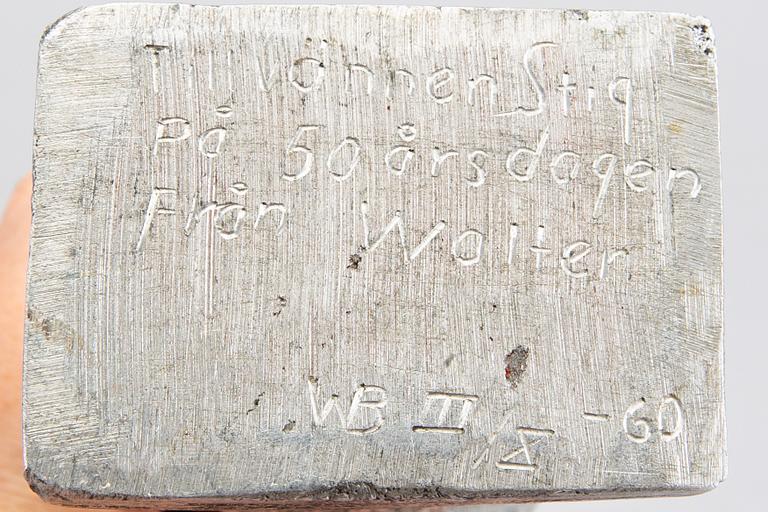 Till vännen Stig
På 50 årsdagen
Från Walter
WB II/X -60